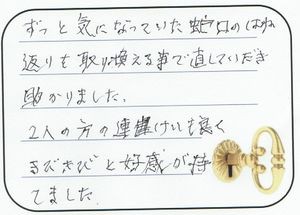 ずっと気になっていた蛇口のはね
返りも取り換える事で直していただき
助かりました。
2人の方の連けいも良く
きびきびと好感が持
てました